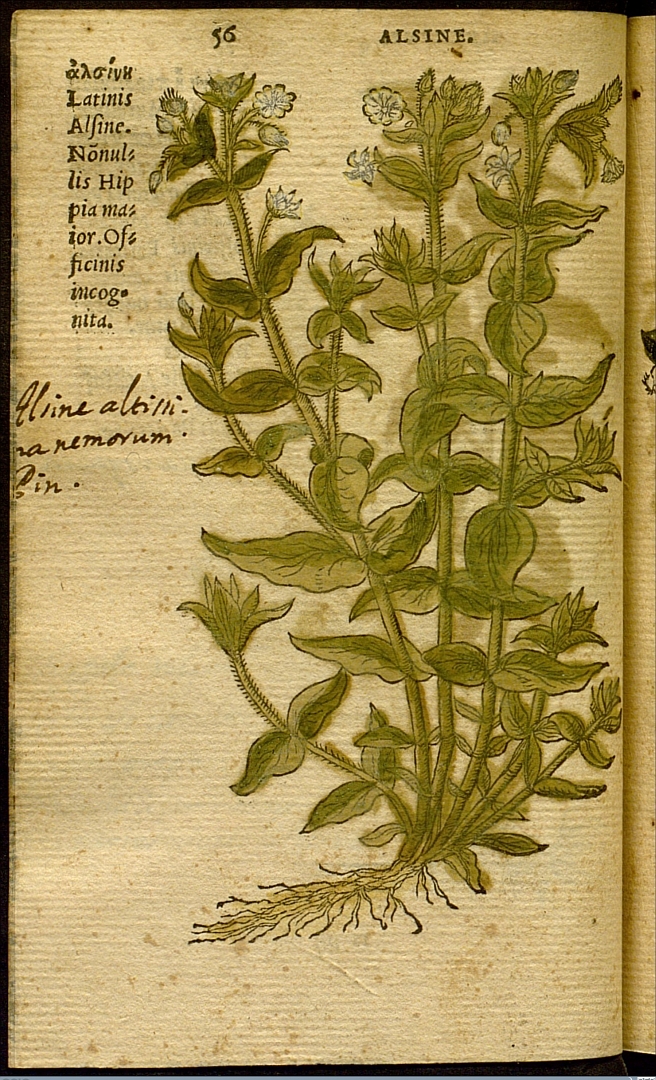 56
ALSINE.
ἀλσίνη
Latinis
Alſine.
Nõnul⸗
lis Hip
pia ma⸗
ior. Of⸗
ficinis
incog⸗
nita.
Alsine altissi-
na nemorum.
Pin.